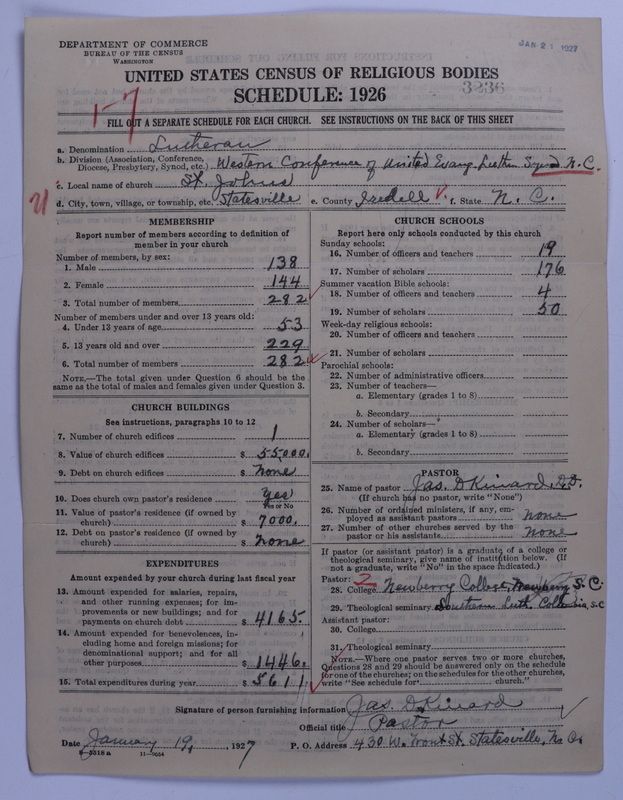 DEPARTMENT OF COMMERCE
BUREAU OF THE CENSUS
WASHINGTON
JAN 21 1927
UNITED STATES CENSUS OF RELIGIOUS BODIES
SCHEDULE: 1926
3236
1-7
FILL OUT A SEPARATE SCHEDULE FOR EACH CHURCH. SEE INSTRUCTIONS ON THE BACK OF THIS SHEET
a. Denomination Lutheran
b. Division (Association, Conference, Diocese, Presbytery, Synod, etc.) Western Conference of United Evang. Luthn Synod N.C.
c. Local name of church St. Johns
d. City, town, village, or township, etc. Statesville e. County Iredell f. State N. C.
MEMBERSHIP
Report number of members according to definition of
member in your church
Number of members, by sex:
1. Male 138
2. Female 144
3. Total number of members 282
Number of members under and over 13 years old:
4. Under 13 years of age 53
5. 13 years old and over 229
6. Total number of members 282
NOTE.—The total given under Question 6 should be the
same as the total of males and females given under Question 3.
CHURCH BUILDINGS
See instructions, paragraphs 10 to 12
7. Number of church edifices 1
8. Value of church edifices $ 55,000.
9. Debt on church edifices $ none
10. Does church own pastor's residence Yes
Yes or No
11. Value of pastor's residence (if owned by
church) $ 7000.
12. Debt on pastor's residence (if owned by
church) $ none
EXPENDITURES
Amount expended by your church during last fiscal year
13. Amount expended for salaries, repairs,
and other running expenses; for im-
provements or new buildings; and for
payments on church debt $ 4165.
14. Amount expended for benevolences, in-
cluding home and foreign missions; for
denominational support; and for all
other purposes $ 1446.
15. Total expenditures during year $ 5611
CHURCH SCHOOLS
Report here only schools conducted by this church
Sunday schools:
16. Number of officers and teachers 19
17. Number of scholars 176
Summer vacation Bible schools:
18. Number of officers and teachers 4
19. Number of scholars 50
Week-day religious schools:
20. Number of officers and teachers
21. Number of scholars
Parochial schools:
22. Number of administrative officers
23. Number of teachers—
a. Elementary (grades 1 to 8)
b. Secondary
24. Number of scholars—
a. Elementary (grades 1 to 8)
b. Secondary
PASTOR
25. Name of pastor Jas. D Kinard, D.D.
(If church has no pastor, write "None")
26. Number of ordained ministers, if any, em-
ployed as assistant pastors none
27. Number of other churches served by the
pastor or his assistants none
If pastor (or assistant pastor) is a graduate of a college or
theological seminary, give name of institution below. (If
not a graduate, write "No" in the space indicated.)
Pastor: 2
28. College Newberry College, Newberry S. C.
29. Theological seminary Southern Luth. Columbia, S.C
Assistant pastor:
30. College
31. Theological seminary
NOTE.—Where one pastor serves two or more churches,
Questions 28 and 29 should be answered only on the schedule
for one of the churches; on the schedules for the other churches,
write "See schedule for church."
Signature of person furnishing information Jas. D Kinard
Official title Pastor
Date January 19, 1927 P. O. Address 430 W. Front St. Statesville, N. C.
8—5318a 11—9054